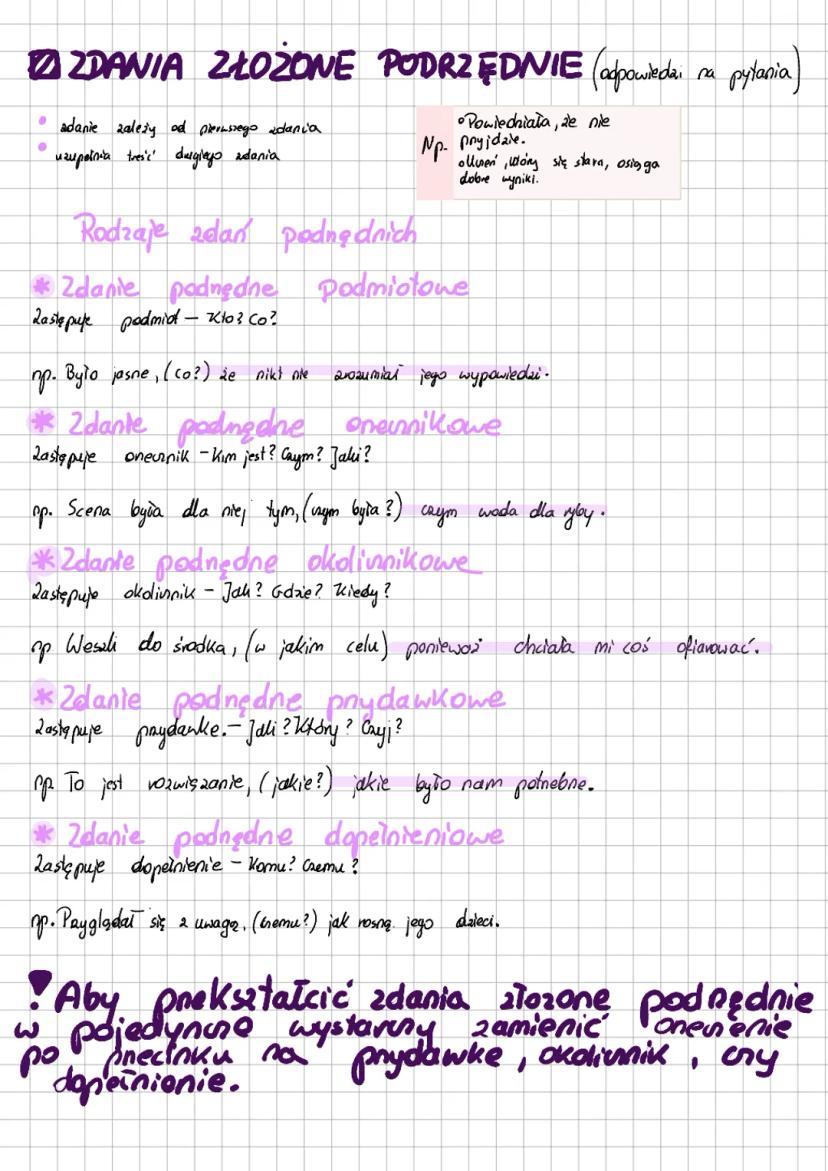 ZDANIA ZŁOŻONE PODRZĘDNIE (odpowiedzi na pytania)
• zdanie zależy od pierwszego zdania
• uzupełnia treść drugiego zdania
Np.
• Powiedziała, że nie
przyjdzie.
• Uczeń, który się stara, osiąga
dobre wyniki.
Rodzaje zdań podrzędnich
* Zdanie podrzędne podmiotowe
Zastępuje podmiot – Kto? Co?
np. Było jasne, (co?) że nikt nie zrozumiał jego wypowiedzi.
* Zdanie podrzędne orzecznikowe
Zastępuje orzecznik – Kim jest? Czym? Jaki?
np. Scena była dla niej tym, (czym była?) czym woda dla ryby.
* Zdanie podrzędne okolicznikowe
Zastępuje okolicznik – Jak? Gdzie? Kiedy?
np Weszli do środka, (w jakim celu) ponieważ chciała mi coś ofiarować.
* Zdanie podrzędne przydawkowe
Zastępuje przydawke. – Jaki? Który? Czyj?
np. To jest rozwiązanie, (jakie?) jakie było nam potrzebne.
* Zdanie podrzędne dopełnieniowe
Zastępuje dopełnienie – Komu? Czemu?
np. Przyglądał się z uwagą, (czemu?) jak rosną jego dzieci.
! Aby przekształcić zdania złożone podrzędnie
w pojedyncze wystarczy zamienić orzeczenie
po przecinku na przydawke, okolicznik, czy
dopełnienie.